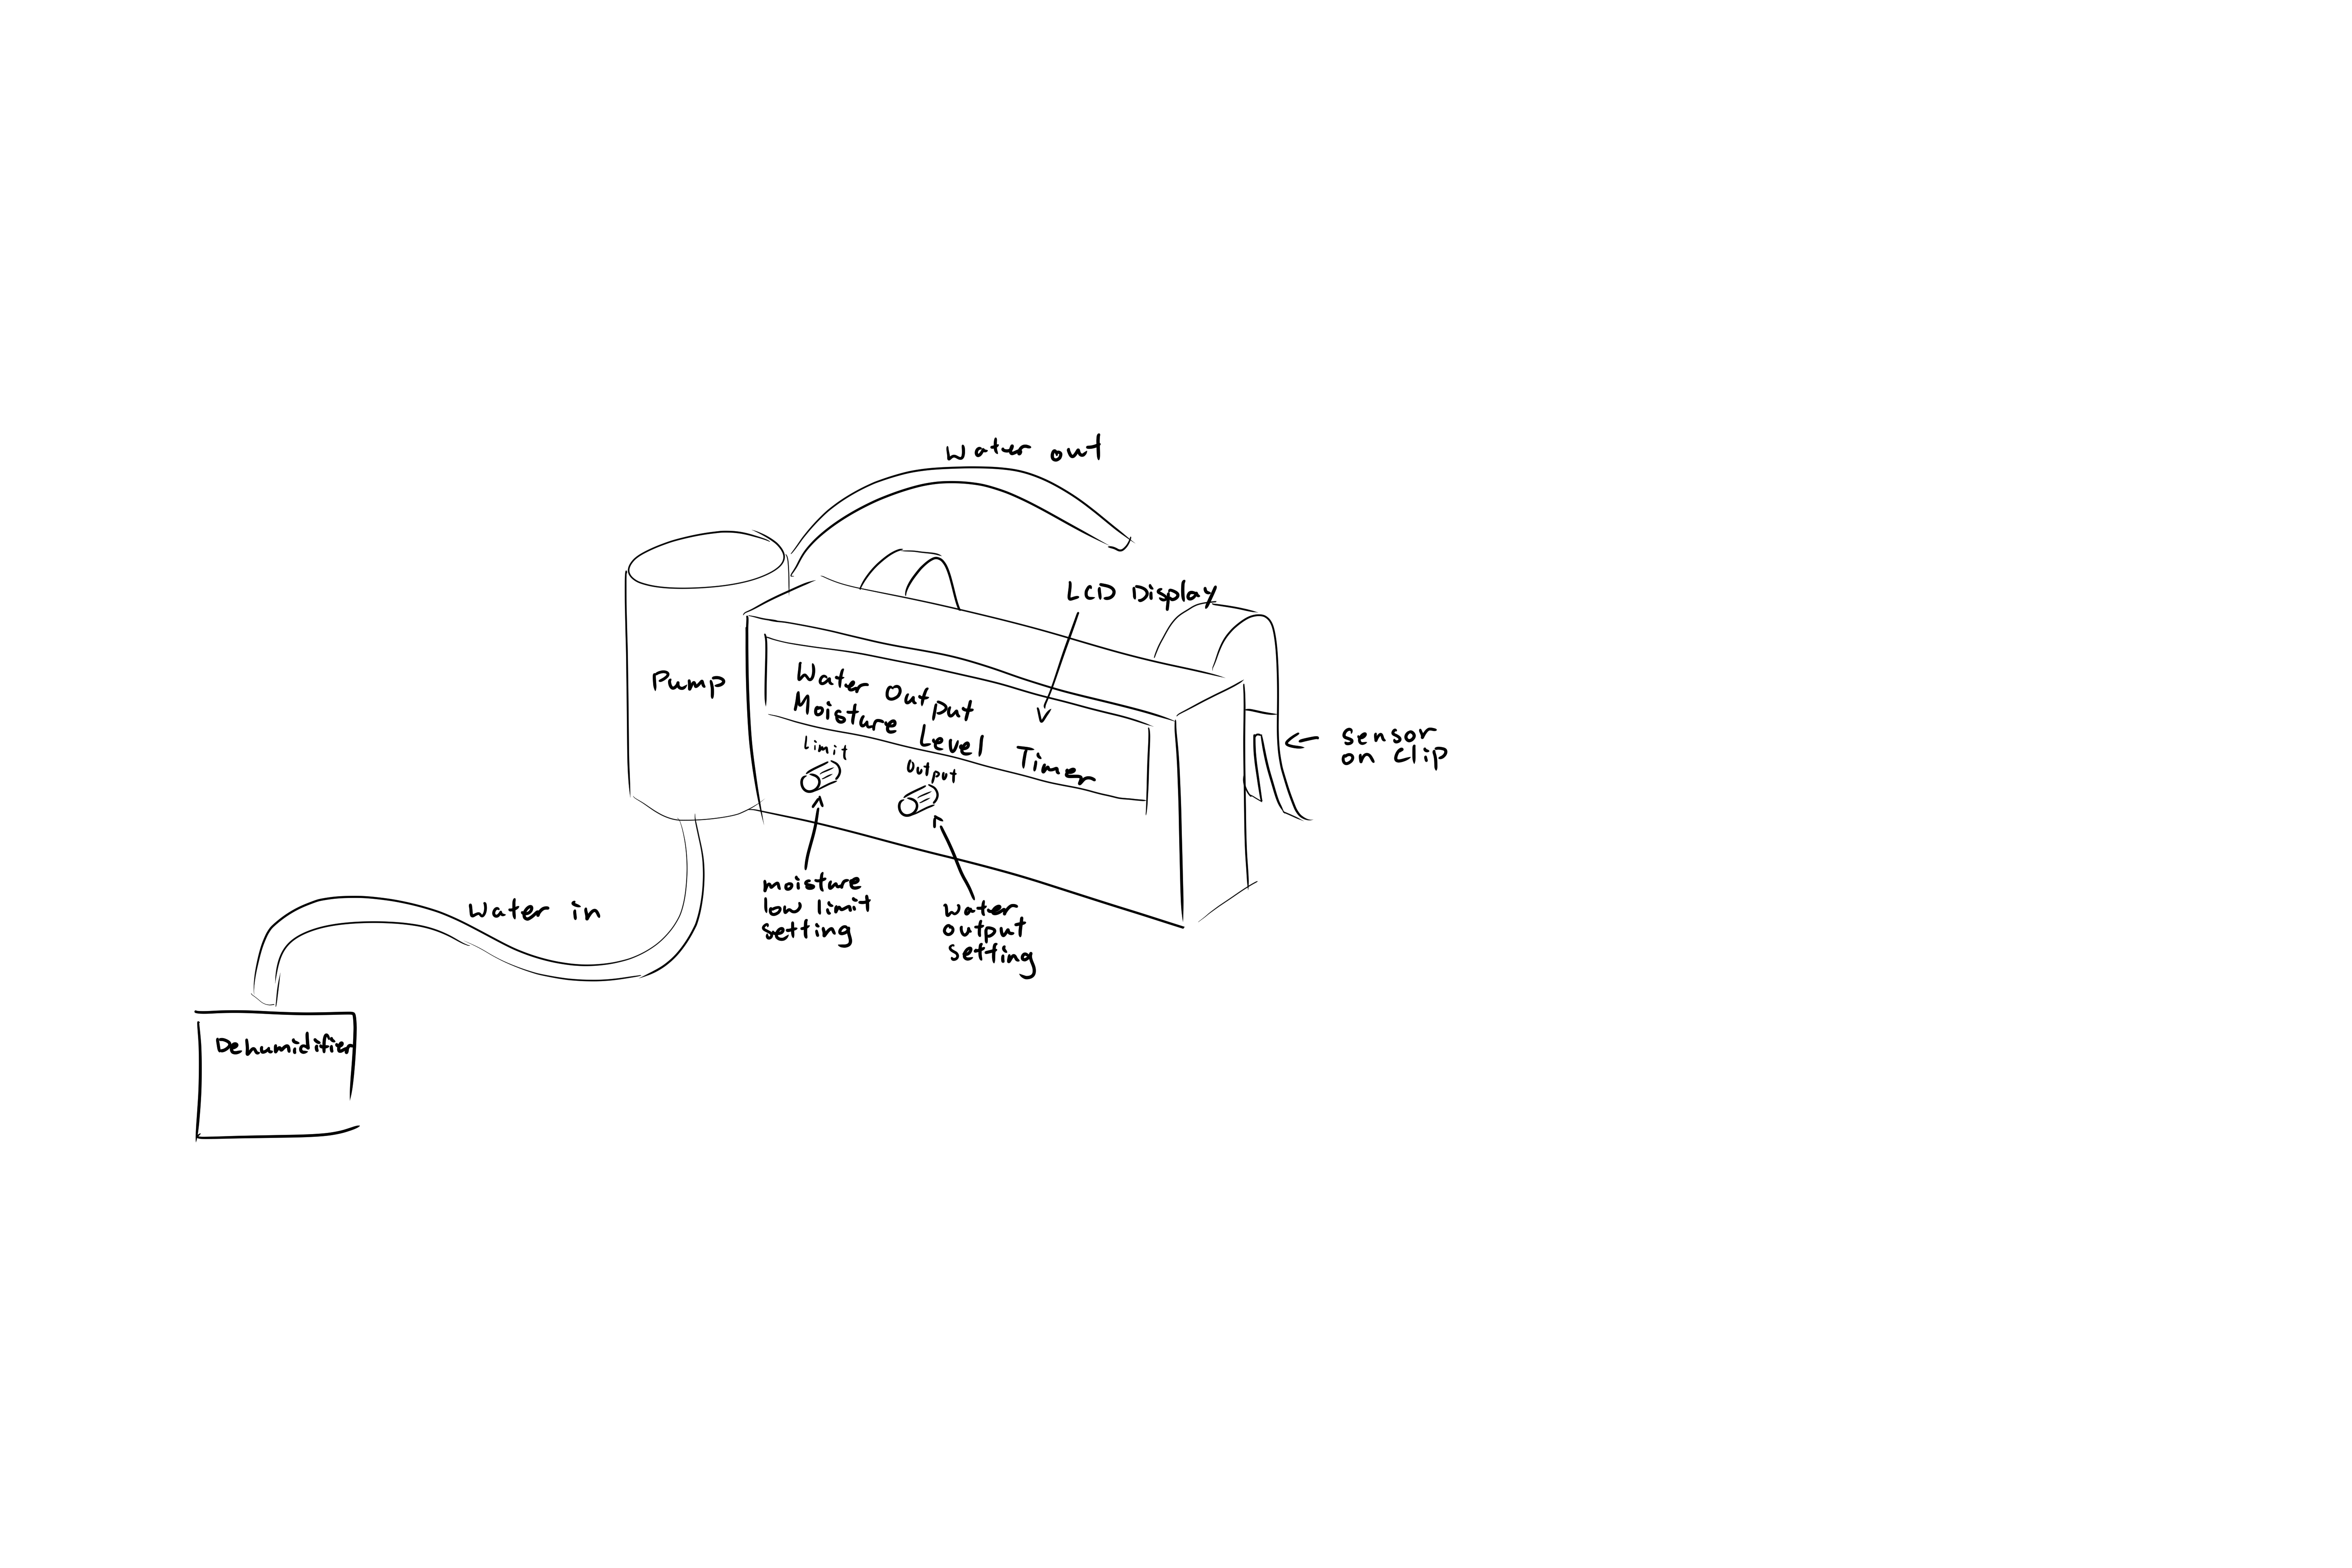 Water out
LCD Display
Pump
Water Output
Moisture Level Timer
sensor
on clip
Limit
Output
moisture
low limit
setting
water
output
setting
water in
Dehumidifier